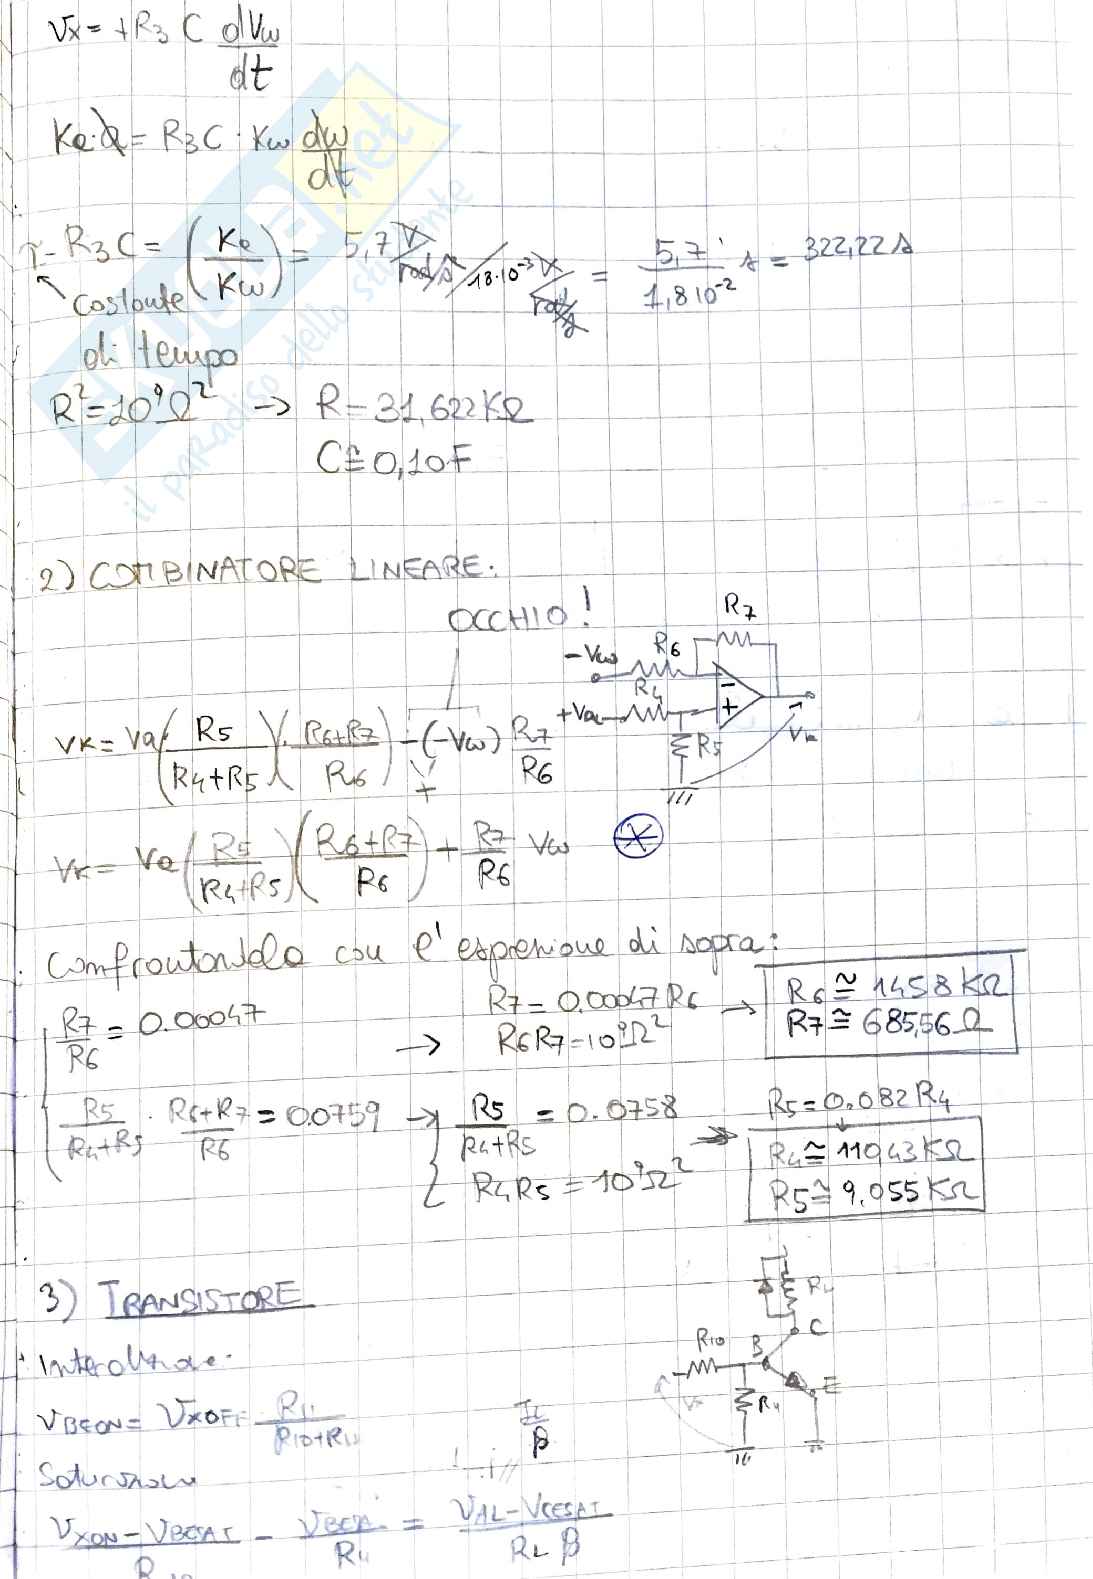 Vx = +R3 C dVω/dt
Ka·a = R3C · Kω dω/dt
τ = R3C = (Ka/Kω) = 5,7 V/rad/s² / 18·10⁻³ V/rad/s = 5,7/1,8 10⁻² s = 322,22 s
costante
di tempo
R² = 10⁹Ω² → R = 31,622 KΩ
C ≅ 0,10 F
2) COMBINATORE LINEARE:
OCCHIO!
R7
-Vω R6
R4
+Va - +
R5 Vk
Vk = Va (R5/R4+R5)·(R6+R7/R6) - (-Vω) R7/R6
+
Vk = Va (R5/R4+R5)(R6+R7/R6) + R7/R6 Vω ⊛
Confrontandola con l'espressione di sopra:
R7/R6 = 0.00047 → R7 = 0.00047 R6 → R6 ≅ 1458 KΩ
R6R7 = 10⁹Ω² R7 ≅ 685,56 Ω
R5/R4+R5 · R6+R7/R6 = 0.0759 → R5/R4+R5 = 0.0758 R5 = 0.082 R4
R4R5 = 10⁹Ω² → R4 ≅ 110,43 KΩ
R5 ≅ 9.055 KΩ
3) TRANSISTORE
RL
C
R10 B
E
R11
Vx
Interdizione:
VBEON = VXOFF R11/R10+R11
IC/β
Saturazione
VXON - VBESAT/R10 - VBESAT/R11 = VAL - VCESAT/RL β
il paradiso dello studente
.net